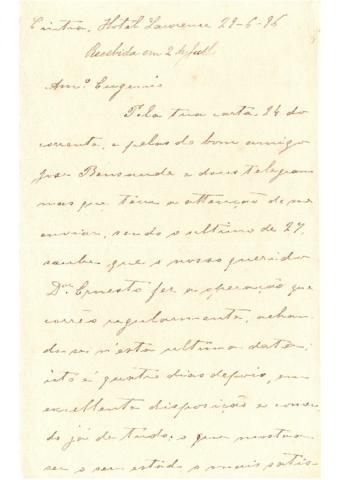 Cintra, Hotel Lawrence 29-6-96
Recebida em 2 Jul.
Am.º Eugenio
Pela tua carta 24 do
corrente, e pelas do bom amigo
José Bensaude e dous telegram
mas que teve a attenção de me
enviar, sendo o ultimo de 27,
soube que o nosso querido
D.or Ernesto fez a operação que
correo regularmente, achan
do-se n'esta ultima data,
isto é quatro dias depois, em
excellente disposição e comen
do já de tudo; o que mostra
ser o seu estado o mais satis